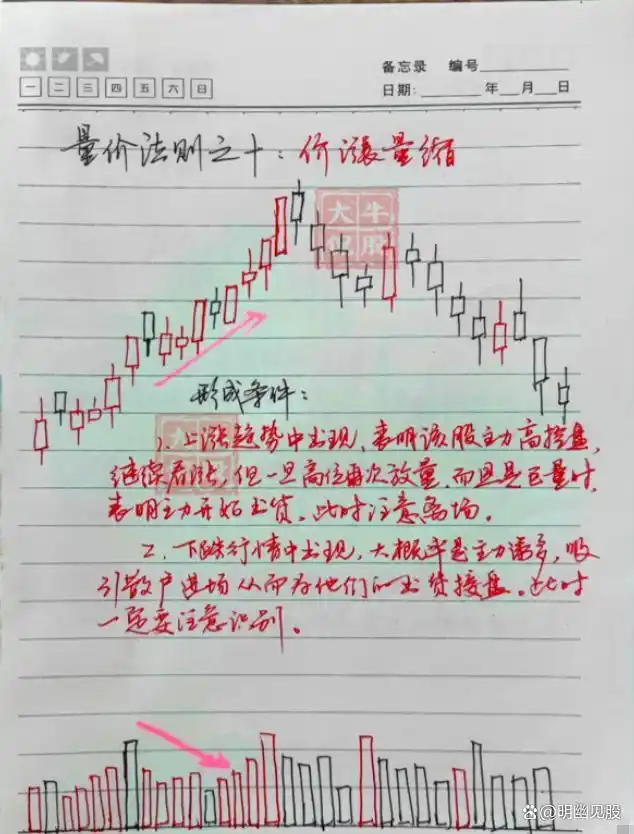 备忘录 编号
一 二 三 四 五 六 日
日期: 年 月 日
量价法则之十：价涨量缩
大牛
说股
形成条件：
1、上涨趋势中出现，表明该股主力高控盘，
大牛
继续看涨，但一旦高位再次放量，而且是巨量时，
表明主力开始出货。此时注意离场。
2、下跌行情中出现，大概率是主力诱多，吸
引散户进场从而为他们的出货接盘。此时
一定要注意识别。
@明幽见股